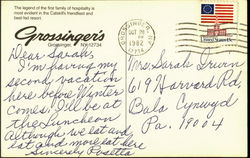 The legend of the first family of hospitality is
most evident in the Catskill's friendliest and
best-fed resort
Grossinger's
Grossinger, NY 12734
Dear Sarah,
I'm having my
second vacation
here before Winter
comes! I'll be at
the Luncheon
Although we eat and
eat and more eat here
Sincerely Rosetta
GROSSINGER
OCT 20
1982
Mrs. Sarah Irwin
619 Harvard Rd,
Bala Cynwyd
Pa. 19004